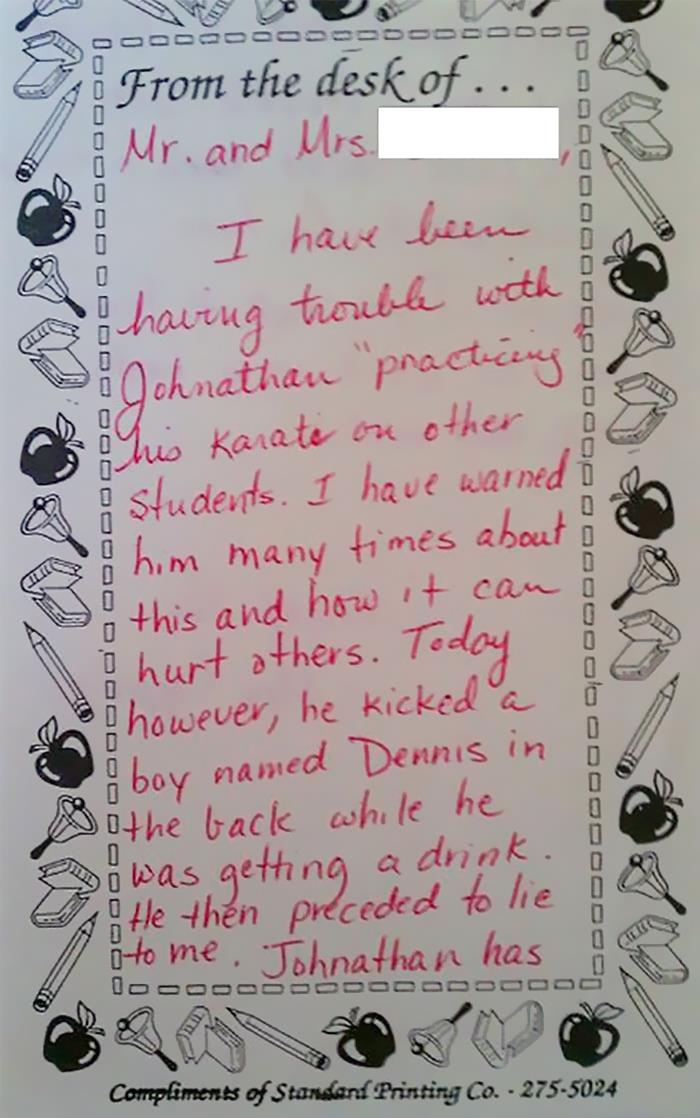 From the desk of . . .
Mr. and Mrs. ,
I have been
having trouble with
Johnathan "practicing"
his Karate on other
students. I have warned
him many times about
this and how it can
hurt others. Today
however, he kicked a
boy named Dennis in
the back while he
was getting a drink.
He then preceded to lie
to me. Johnathan has
Compliments of Standard Printing Co. - 275-5024